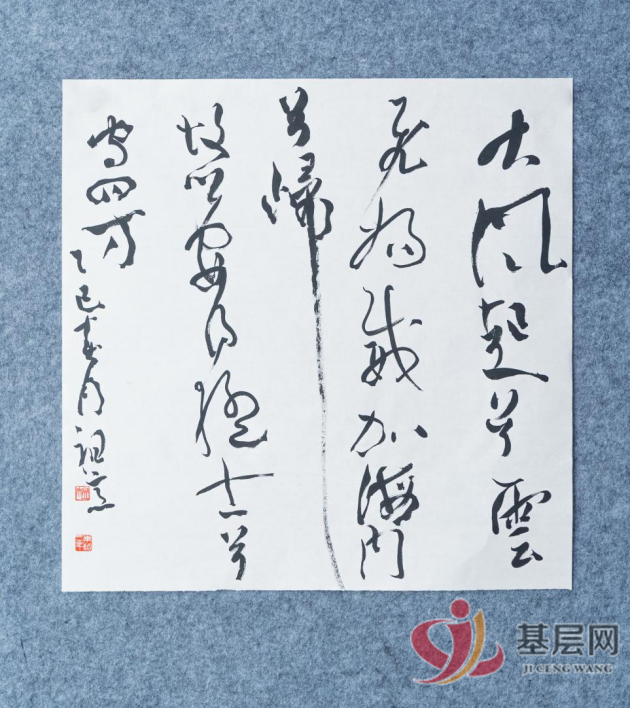 大風起兮雲
飛揚威加海內
兮歸
故鄉安得猛士兮
守四方
乙巳春月
基层网
JI CENG WANG